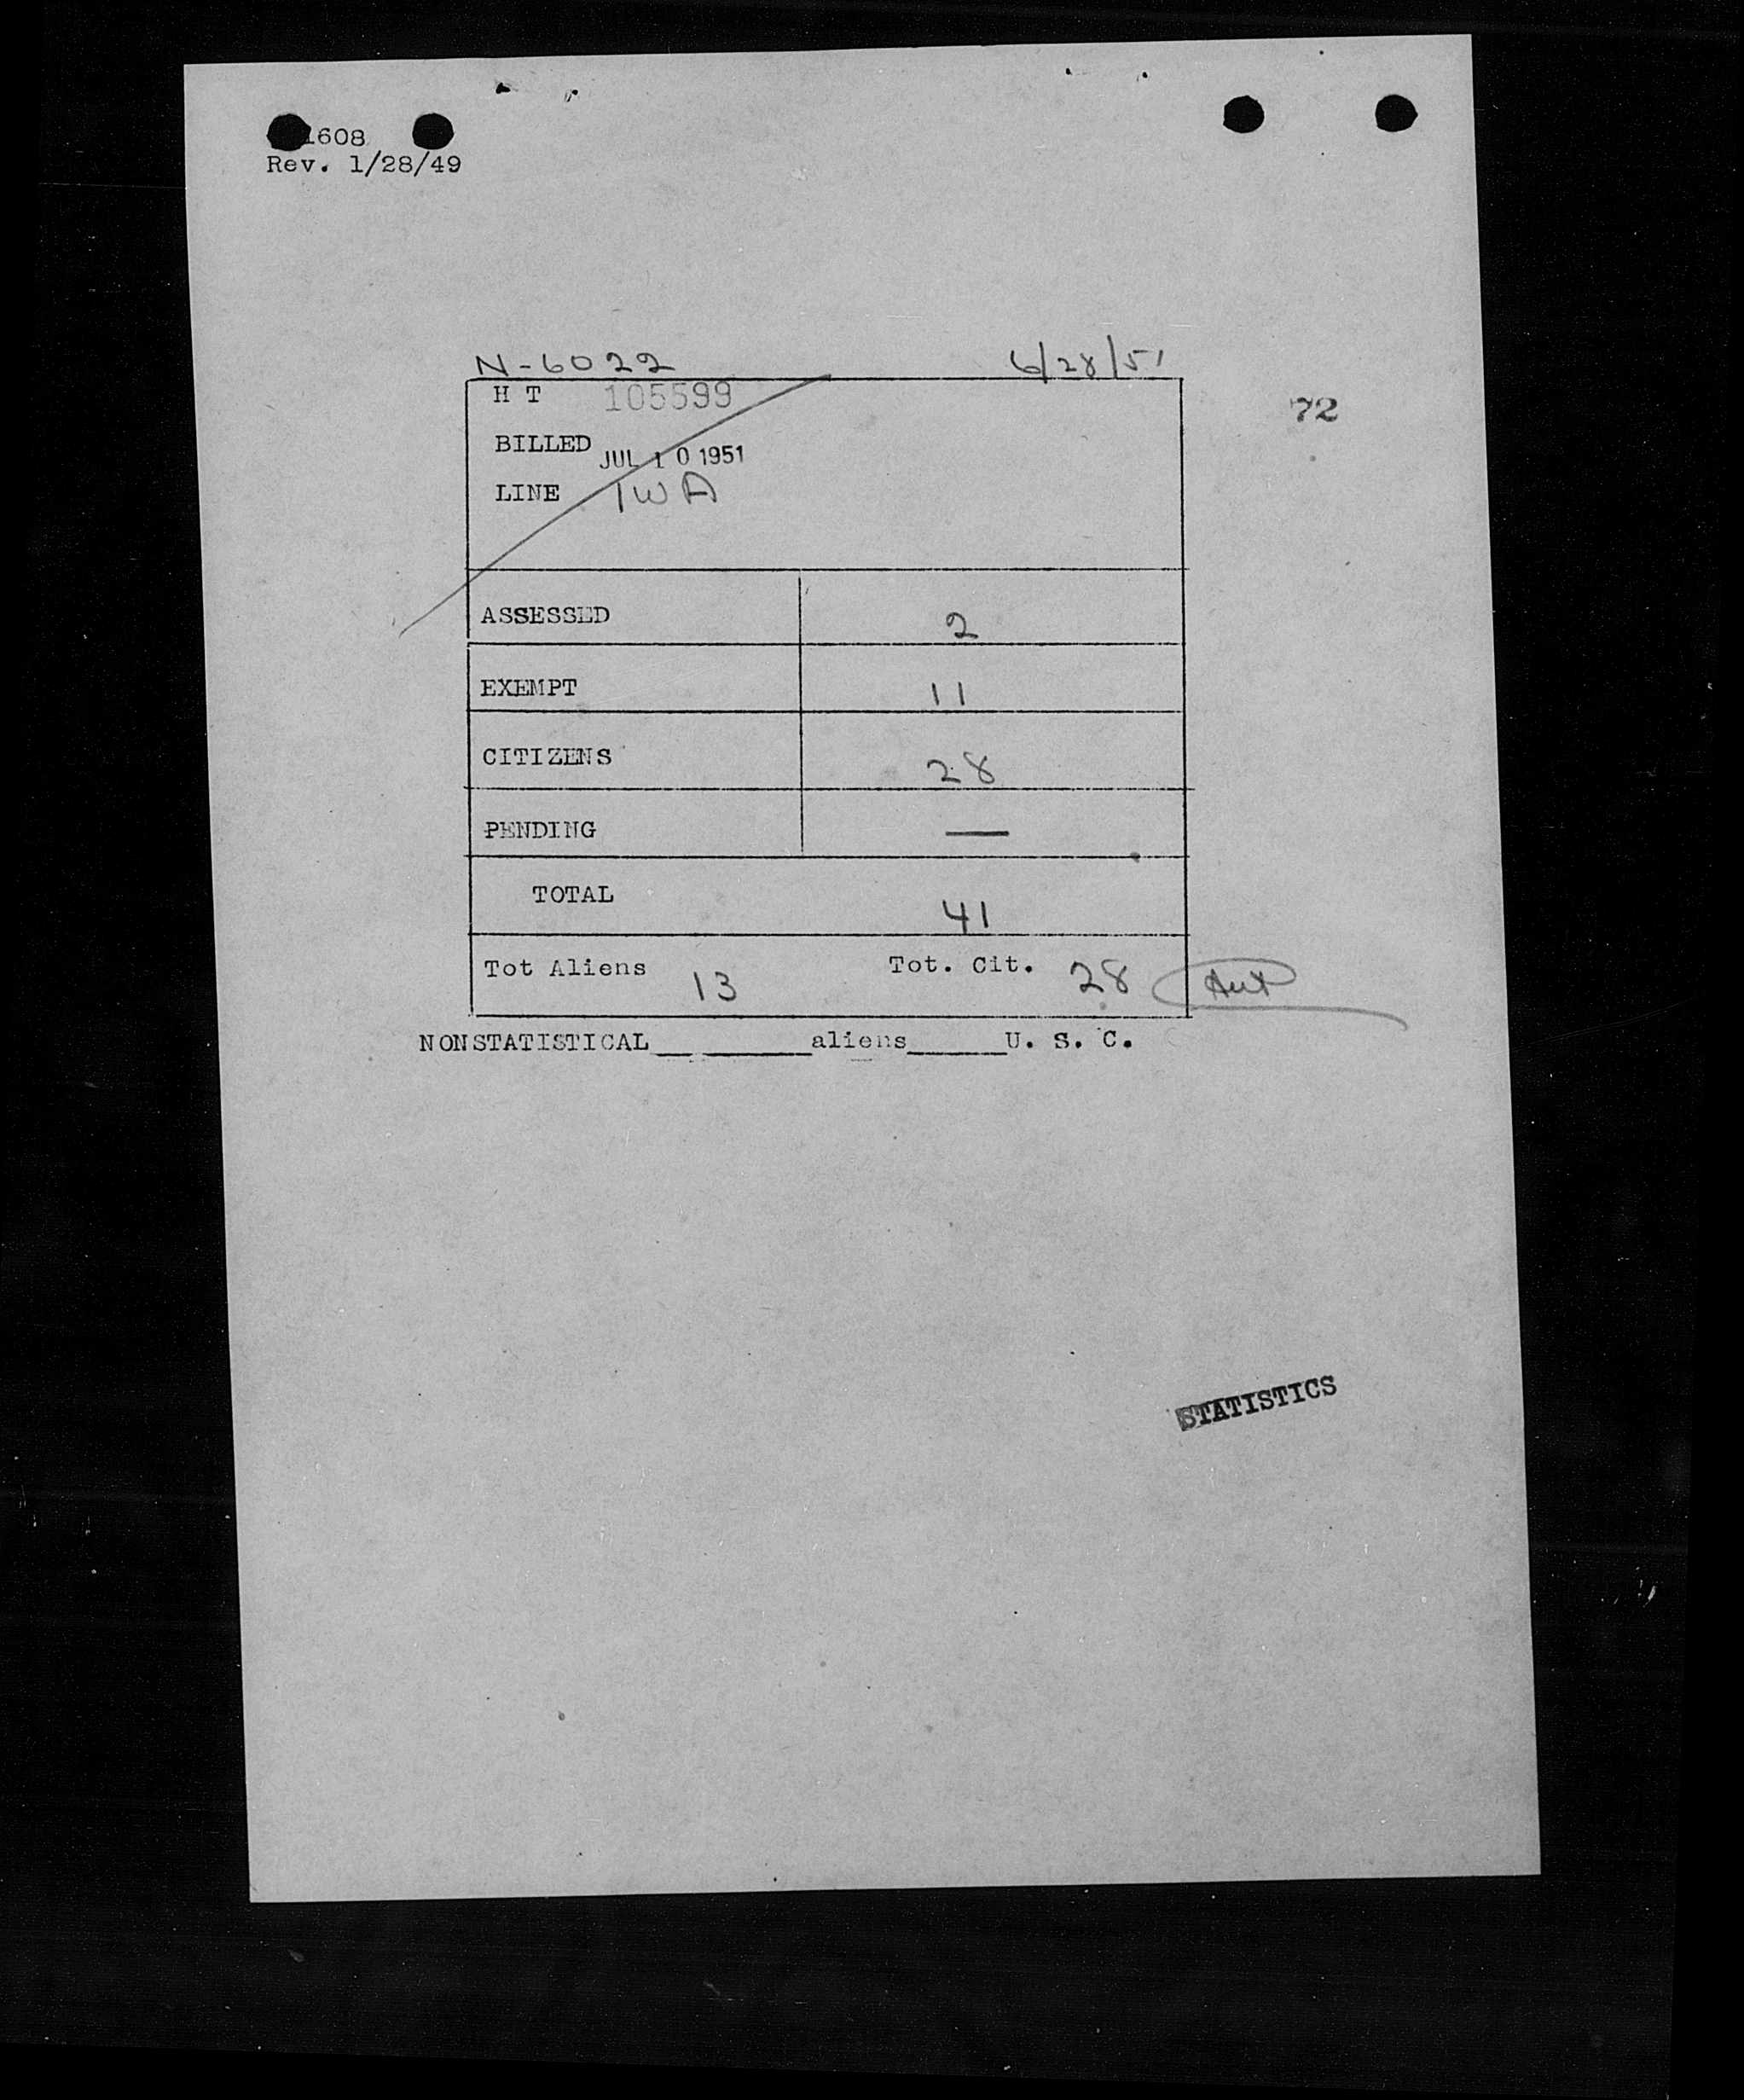 1608
Rev. 1/28/49
N-6022 6/28/51
H T 105599
72
BILLED JUL 10 1951
LINE TWA
ASSESSED 2
EXEMPT 11
CITIZENS 28
PENDING —
TOTAL 41
Tot Aliens 13 Tot. Cit. 28
NONSTATISTICAL__ ______aliens_____U. S. C.
STATISTICS